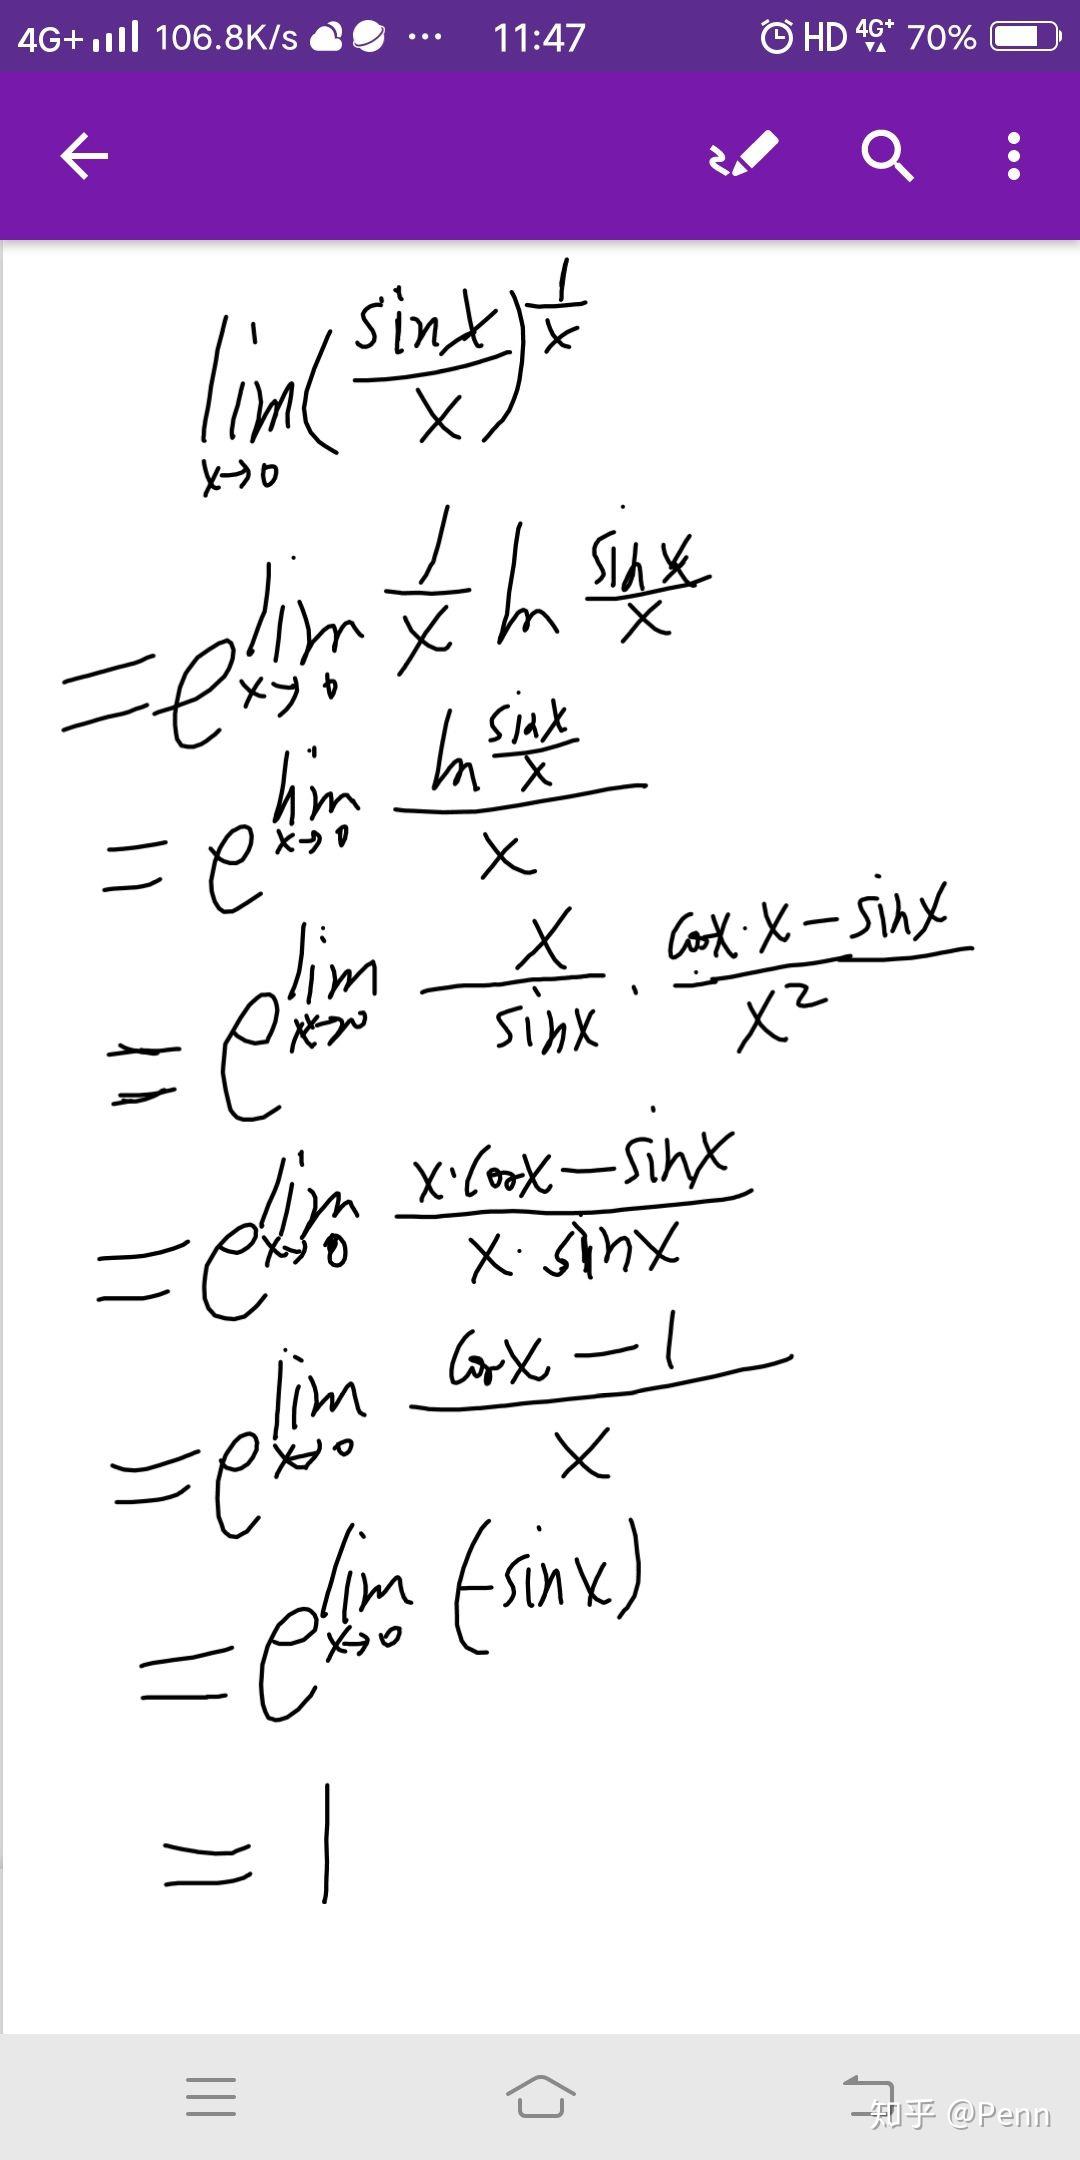 4G+ 106.8K/s ... 11:47 HD 4G+ 70%
lim(sinx/x)^(1/x)
x→0
=e^(lim x→0 1/x ln sinx/x)
=e^(lim x→0 (ln sinx/x)/x)
=e^(lim x→0 x/sinx · (cosx·x-sinx)/x²)
=e^(lim x→0 (x·cosx-sinx)/(x·sinx))
=e^(lim x→0 (cosx-1)/x)
=e^(lim x→0 (-sinx))
=1
知乎 @Penn